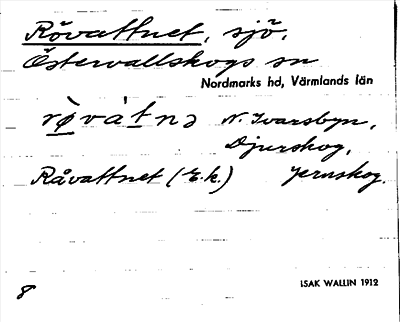 Rövattnet, sjö,
Östervallskogs sn
Nordmarks hd, Värmlands län
rø̀vàtnə N. Ivarsbyn,
Djurskog,
Råvattnet (E.k.) Jernskog.
8
ISAK WALLIN 1912